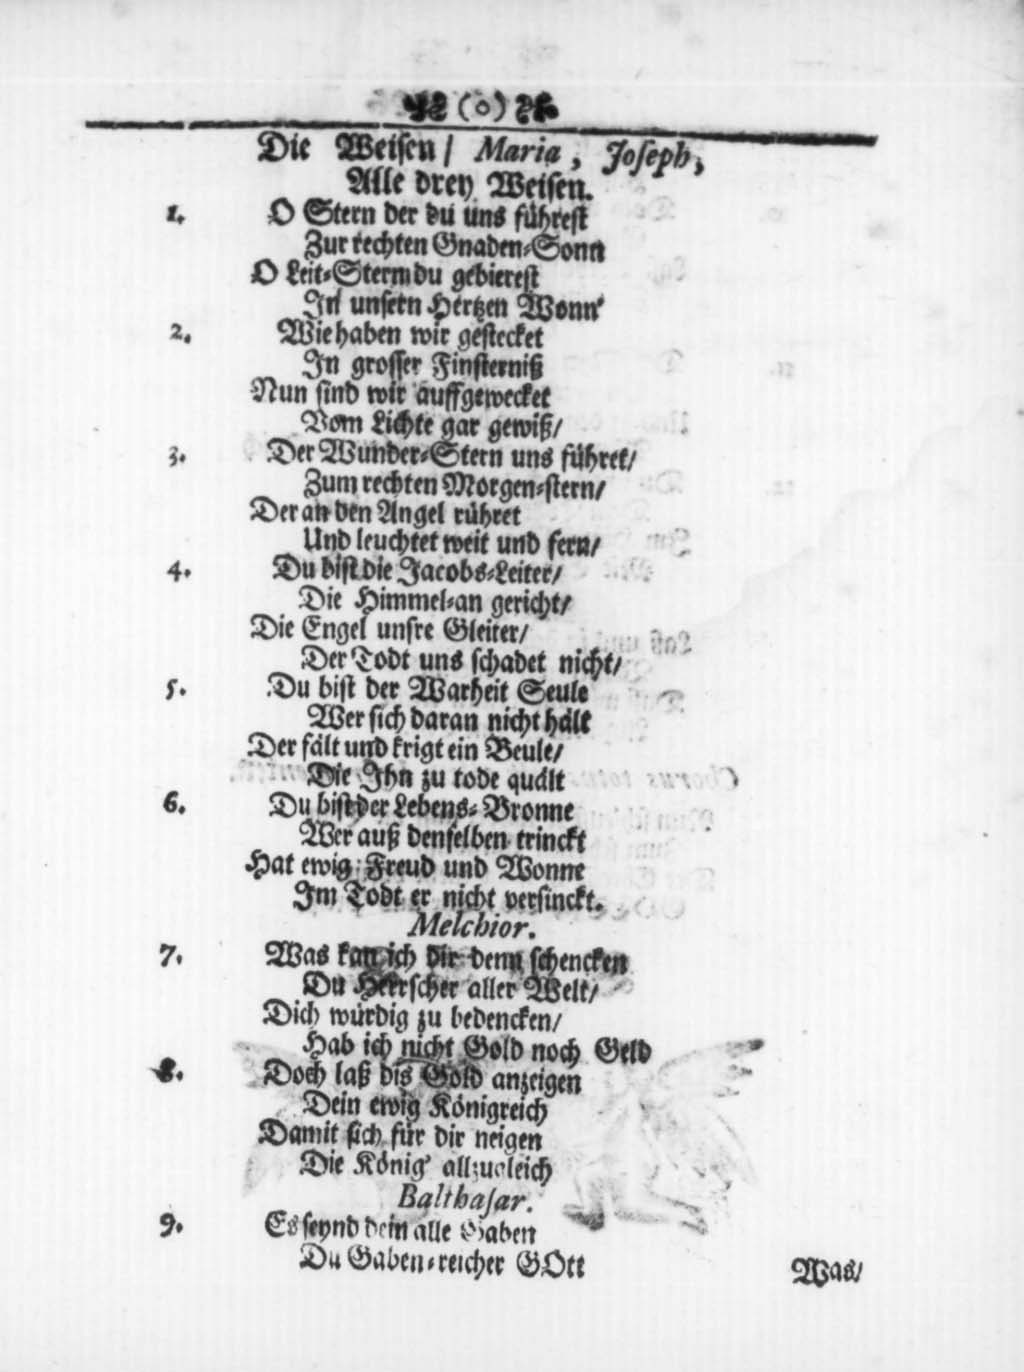 (o)
Die Weisen / Maria, Joseph,
Alle drey Weisen.
1. O Stern der du uns führest
Zur rechten Gnaden-Sonn
O Leit-Stern du gebierest
In unsern Hertzen Wonn'
2. Wie haben wir gestecket
In grosser Finsterniß
Nun sind wir auffgewecket
Vom Lichte gar gewiß/
3. Der Wunder-Stern uns führet/
Zum rechten Morgen-stern/
Der an den Angel rühret
Und leuchtet weit und fern/
4. Du bist die Jacobs-Leiter/
Die Himmel-an gericht/
Die Engel unsre Gleiter/
Der Todt uns schadet nicht/
5. Du bist der Warheit Seule
Wer sich daran nicht hält
Der fält und krigt ein Beule/
Die Ihn zu tode quält
6. Du bist der Lebens-Bronne
Wer auß denselben trinckt
Hat ewig Freud und Wonne
Im Todt er nicht versinckt.
Melchior.
7. Was kan ich dir denn schencken
Du Herrscher aller Welt/
Dich würdig zu bedencken/
Hab ich nicht Gold noch Geld
8. Doch laß diß Gold anzeigen
Dein ewig Königreich
Damit sich für dir neigen
Die König' allzugleich
Balthasar.
9. Es seynd dein alle Gaben
Du Gaben-reicher GOtt
Was/